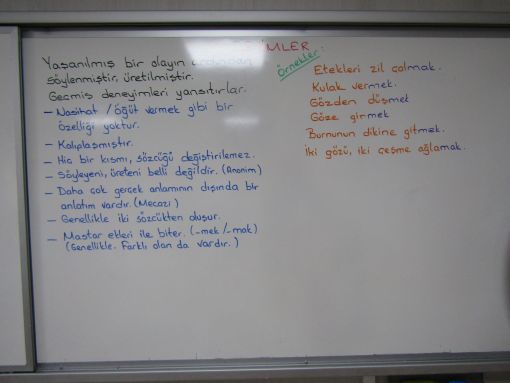 İMLER
Yaşanılmış bir olayın ardından
söylenmiştir, üretilmiştir.
Geçmiş deneyimleri yansıtırlar.
- Nasihat / öğüt vermek gibi bir
özelliği yoktur.
- Kalıplaşmıştır.
- Hiç bir kısmı, sözcüğü değiştirilemez.
- Söyleyeni, üreteni belli değildir. (Anonim)
- Daha çok gerçek anlamının dışında bir
anlatım vardır. (Mecazi)
- Genellikle iki sözcükten oluşur.
- Mastar ekleri ile biter. (-mek / -mak)
(Genellikle. Farklı olan da vardır.)
Örnekler:
Etekleri zil çalmak.
Kulak vermek.
Gözden düşmek
Göze girmek
Burnunun dikine gitmek.
İki gözü, iki çeşme ağlamak.